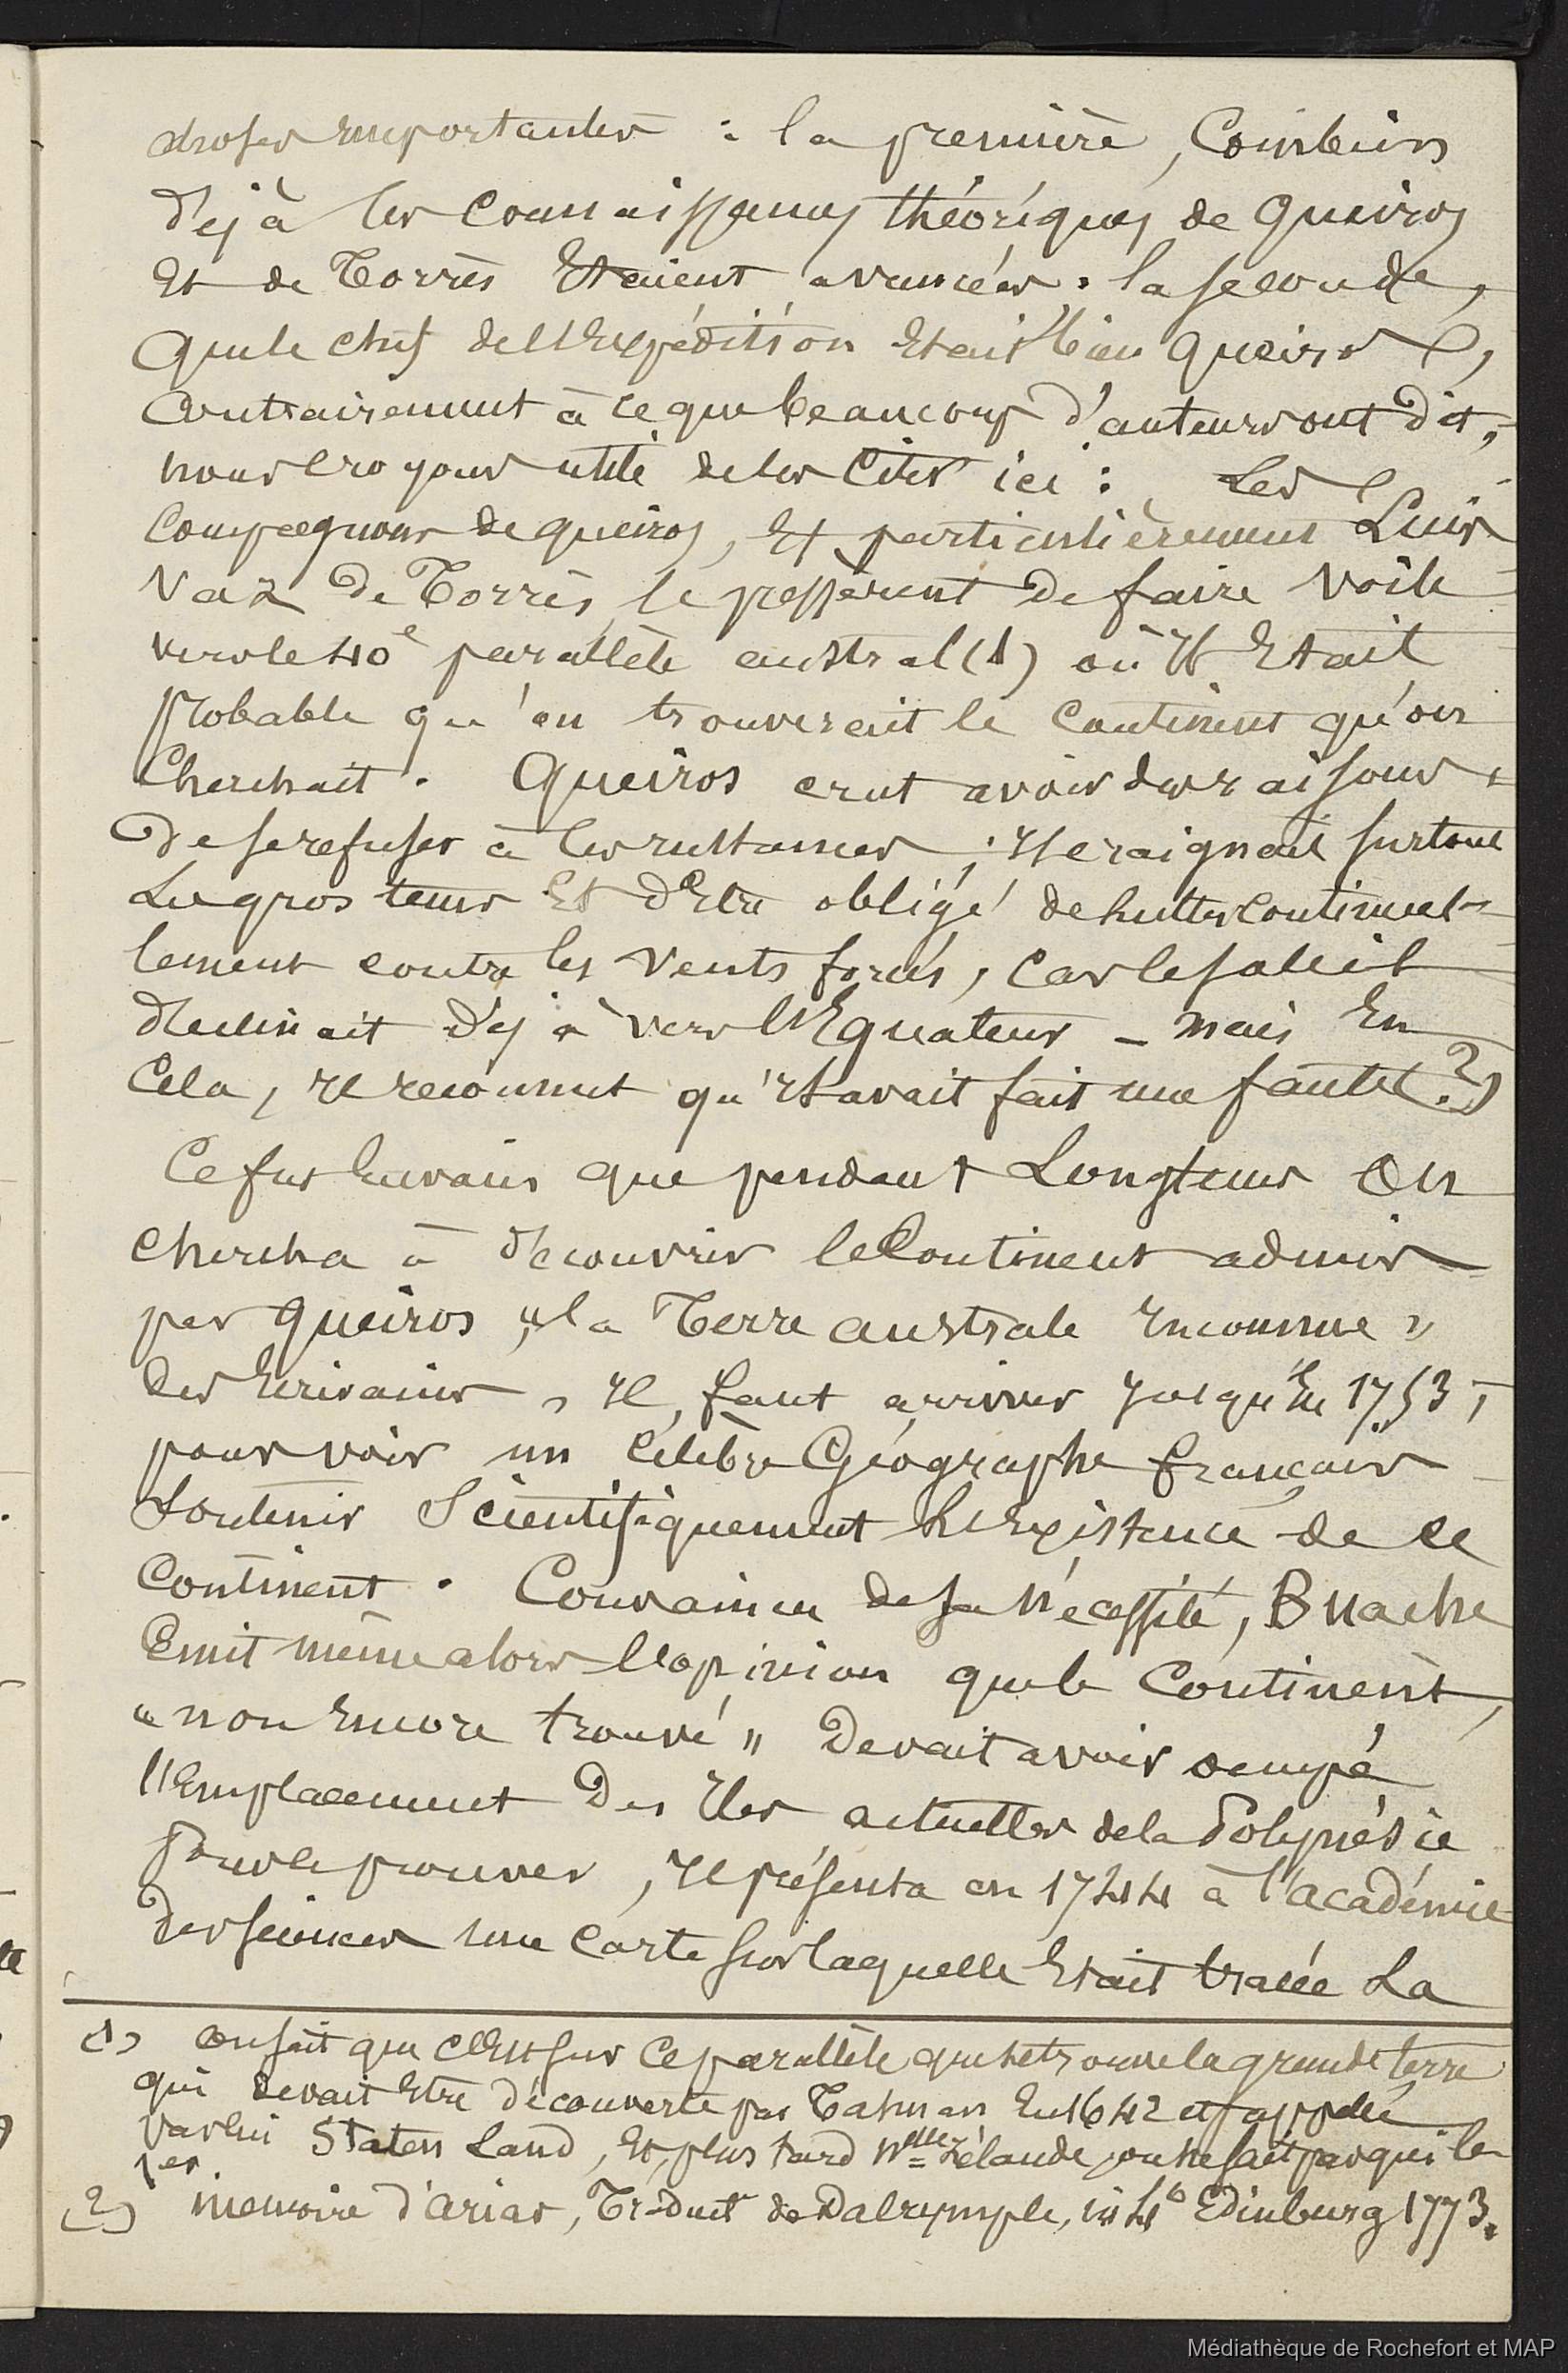 choses importantes : la première, Combien
déjà les connaissances théoriques de Queiros
Et de Torrès Etaient avancées ; la seconde,
que le chef de l'Expédition Etait bien Queiros,
Contrairement à ce que beaucoup d'auteurs ont dit,
nous croyons utile de les Citer ici : Les
Compagnons de Queiros, Et particulièrement Luis
Vaz de Torrès, le pressèrent de faire voile
vers le 40e parallèle austral (1) où Il Etait
probable qu'on trouverait le Continent qu'on
Cherchait. Queiros crut avoir des raisons
de se refuser à les instances ; Il craignait surtout
Le gros tems Et d'Etre obligé de lutter Continuel-
lement contre les Vents forcés, Car le soleil
declinait déjà vers l'Equateur _ mais En
Cela, Il reconnut qu'Il avait fait une faute (2)
Ce fut Envain que pendant Longtems On
chercha à découvrir le Continent admis
par Queiros, "la Terre australe Inconnue"
des Ecrivains, Il faut arriver jusqu'En 1753,
pour voir un Célèbre Géographe français
Soutenir Scientifiquement l'Existence de ce
Continent. Convaincu de sa nécessité, Buache
Emit même alors l'opinion que le Continent,
"non Encore trouvé" Devait avoir occupé
l'Emplacement Des Iles actuelles de la Polynésie
Pour le prouver, Il présenta en 1744 à l'académie
des sciences une Carte sur laquelle Etait tracée La
(1) On sait que c'Est sur Ce parallèle que se trouve la grande terre
qui devait Etre découverte par Tasman En 1642 et appelée
par lui Staten Land, Et, plus tard Nelle Zélande, on ne sait par qui le
1er.
(2) memoire d'arias, Traduit de Dalrymple, in 4o Edinburg 1773.
Médiathèque de Rochefort et MAP